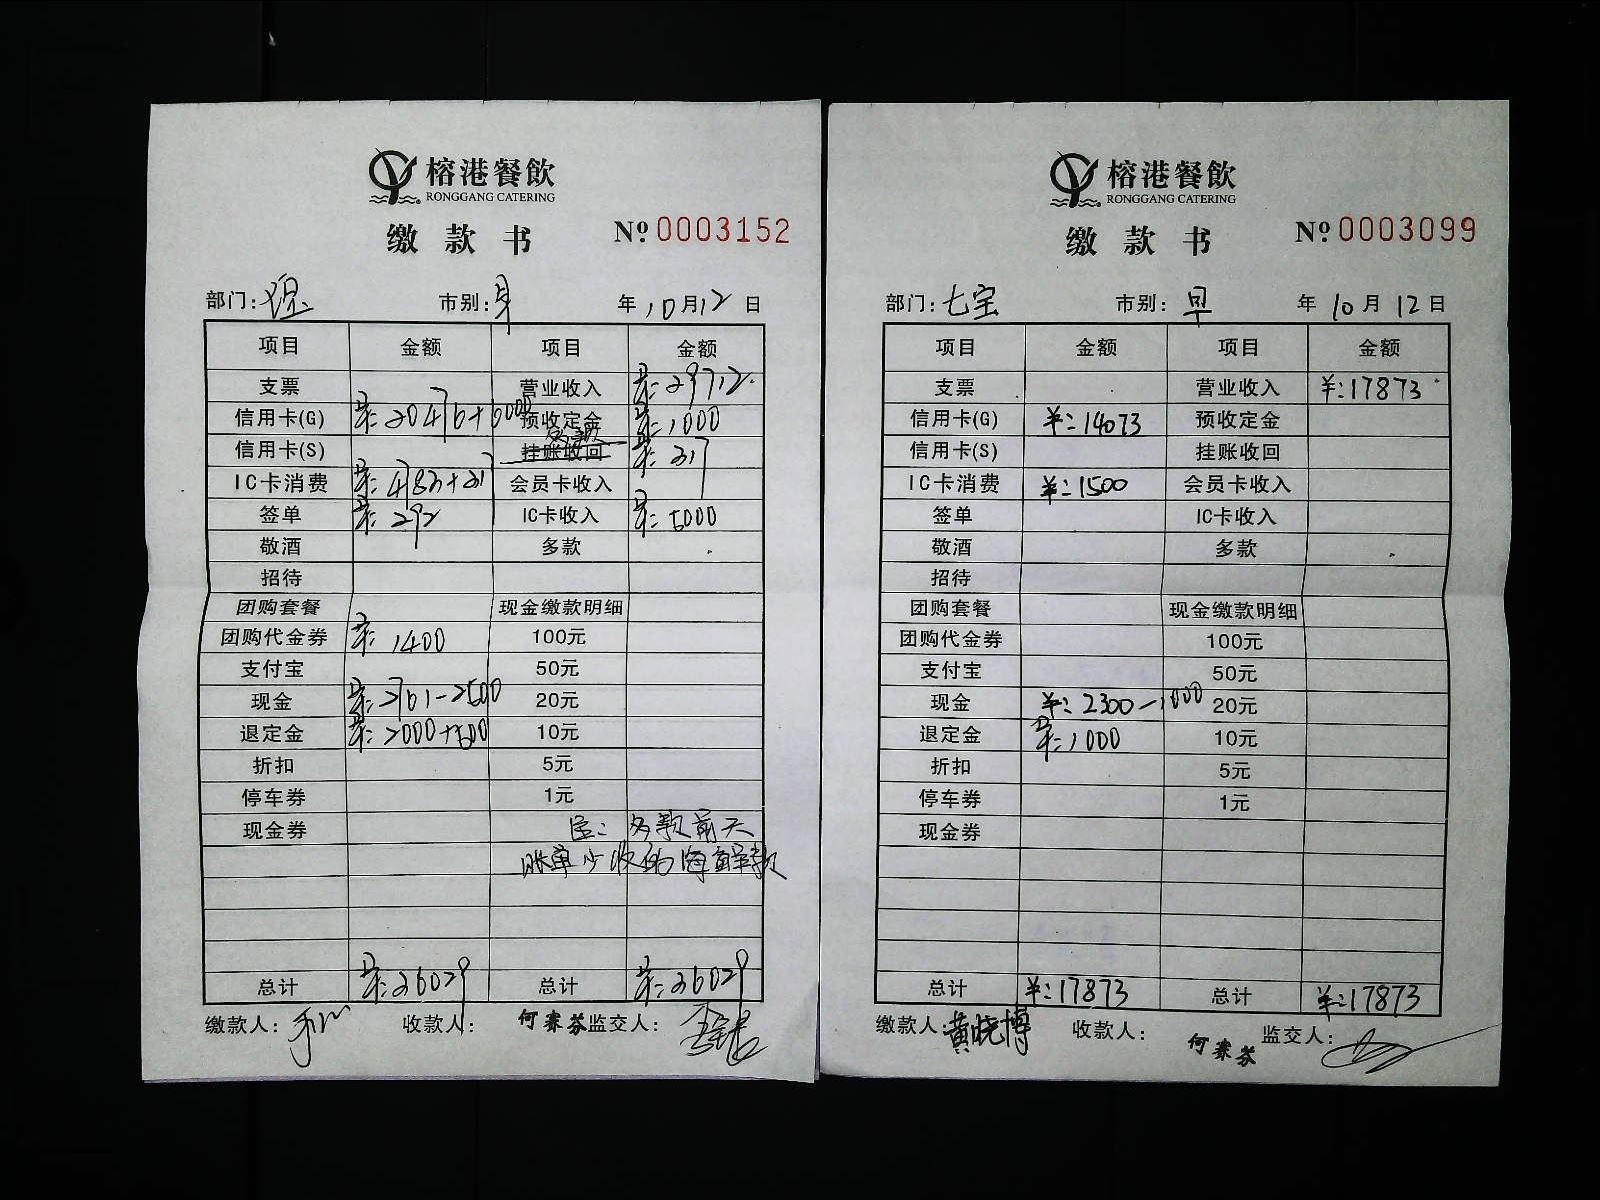 榕港餐飲
RONGGANG CATERING
缴款书 Nº 0003152
部门: 市别: 年 10月12日
项目 金额 项目 金额
支票 营业收入
信用卡(G) 预收定金 1000
信用卡(S) 多款 挂账收回
IC卡消费 会员卡收入
签单 292 IC卡收入 5000
敬酒 多款
招待
团购套餐 现金缴款明细
团购代金券 1400 100元
支付宝 50元
现金 2761-2500 20元
退定金 2000+500 10元
折扣 5元
停车券 1元
现金券 多款前天
账单少收的海鲜款
总计 总计
缴款人: 收款人: 何赛芬 监交人:
榕港餐飲
RONGGANG CATERING
缴款书 Nº 0003099
部门: 七宝 市别: 早 年 10月12日
项目 金额 项目 金额
支票 营业收入 ¥:17873
信用卡(G) ¥:14073 预收定金
信用卡(S) 挂账收回
IC卡消费 ¥:1500 会员卡收入
签单 IC卡收入
敬酒 多款
招待
团购套餐 现金缴款明细
团购代金券 100元
支付宝 50元
现金 ¥:2300-1000 20元
退定金 ¥:1000 10元
折扣 5元
停车券 1元
现金券
总计 ¥:17873 总计 ¥:17873
缴款人: 黄晓博 收款人: 何赛芬 监交人: